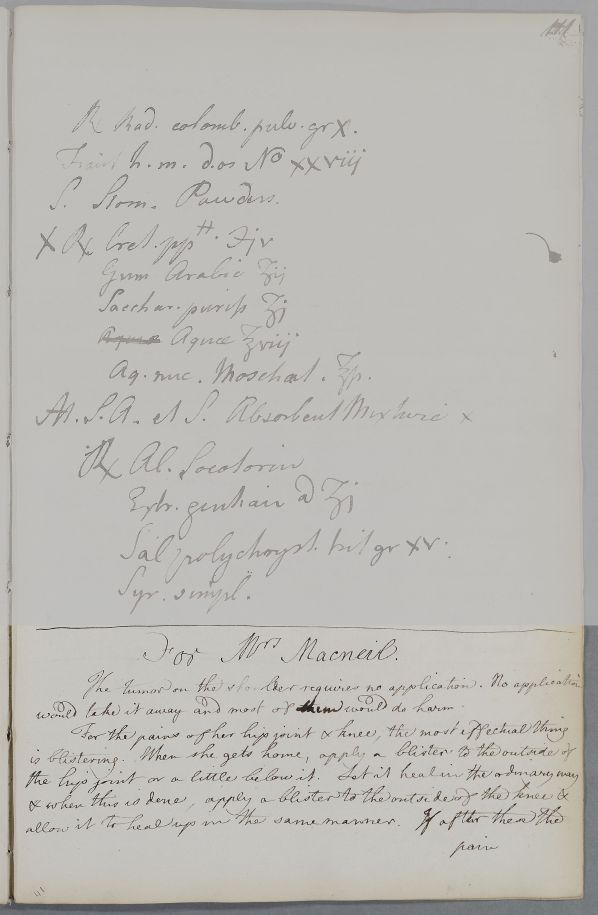 ℞ Rad. colomb. pulv. gr X.
Fiant h. m. d.os No xxviij
S. Stom. Powders.
X ℞ Cret. pptt. ʒiv
Gum Arabic ʒij
Sacchar. puriss ʒj
Aquæ ʒviij
Aq. nuc. Moschat. ʒss.
M. S. A. et S. Absorbent Mixture x
℞ Al. Socotorin
Extr. gentian a ʒj
Sal polychryst. trit gr xv.
Syr. simpl.
For Mrs Macneil.
The tumor on the shoulder requires no application. No application
would take it away and most of them would do harm.
For the pains of her hip joint & knee, the most effectual thing
is blistering. When she gets home, apply a blister to the outside of
the hip joint or a little below it. Let it heal in the ordinary way
& when this is done, apply a blister to the outside of the knee &
allow it to heal up in the same manner. If after these the
pain